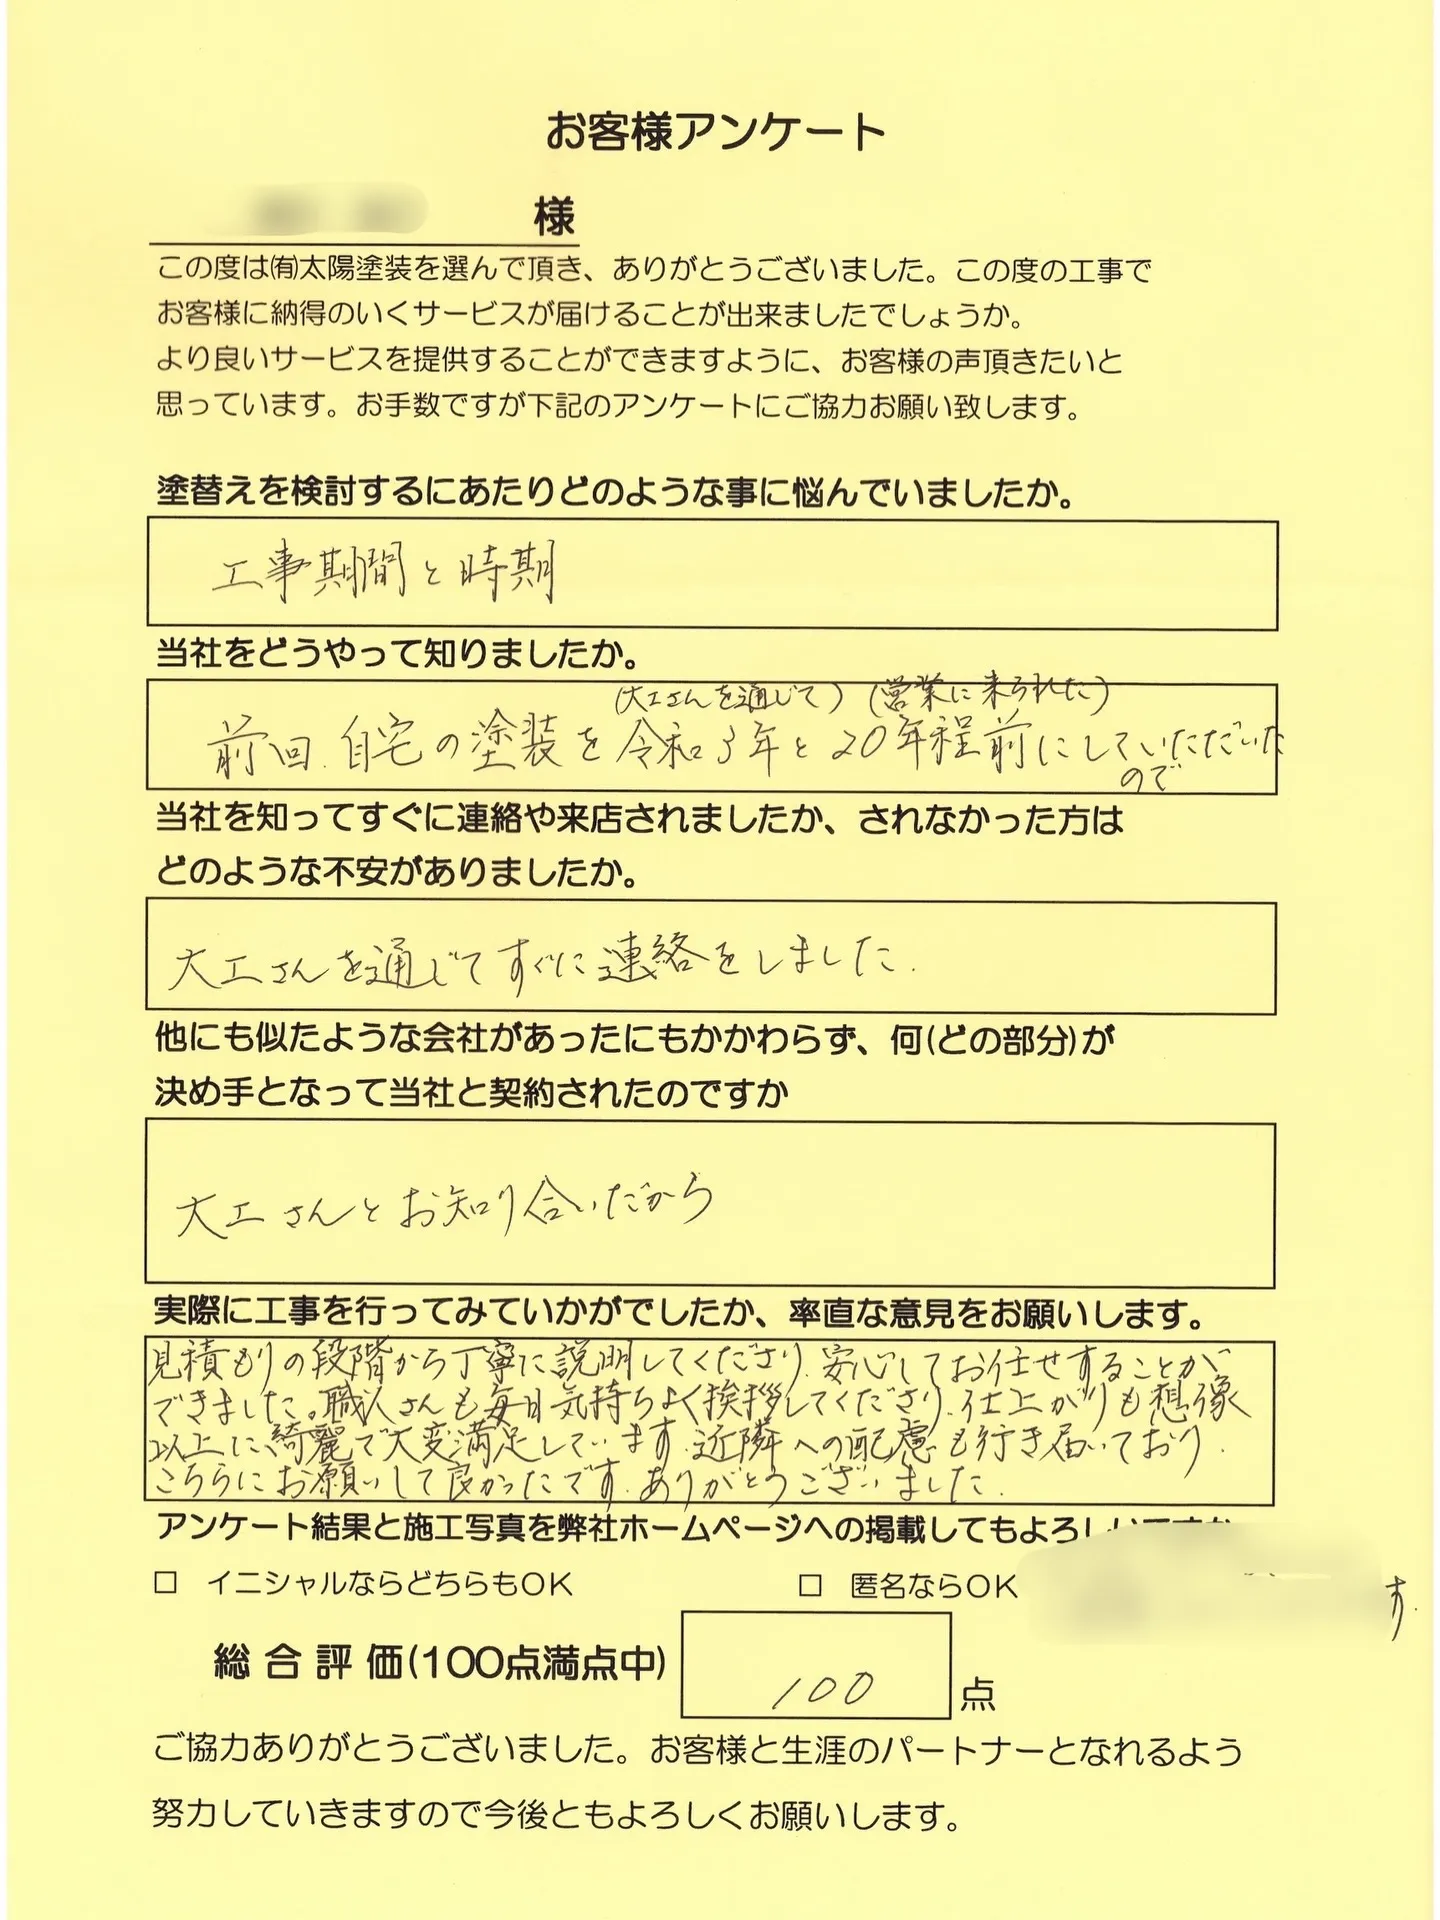 お客様アンケート
様
この度は㈲太陽塗装を選んで頂き、ありがとうございました。この度の工事で
お客様に納得のいくサービスが届けることが出来ましたでしょうか。
より良いサービスを提供することができますように、お客様の声頂きたいと
思っています。お手数ですが下記のアンケートにご協力お願い致します。
塗替えを検討するにあたりどのような事に悩んでいましたか。
工事期間と時期
当社をどうやって知りましたか。
(大工さんを通じて) (営業に来られた)
前回.自宅の塗装を令和3年と20年程前にしていただいた
ので
当社を知ってすぐに連絡や来店されましたか、されなかった方は
どのような不安がありましたか。
大工さんを通じてすぐに連絡をしました.
他にも似たような会社があったにもかかわらず、何(どの部分)が
決め手となって当社と契約されたのですか
大工さんとお知り合いだから
実際に工事を行ってみていかがでしたか、率直な意見をお願いします。
見積もりの段階から丁寧に説明してくださり.安心してお任せすることが
できました。職人さんも毎日気持ちよく挨拶してくださり.仕上がりも想像
以上に、綺麗で大変満足しています.近隣への配慮も行き届いており.
こちらにお願いして良かったです.ありがとうございました.
アンケート結果と施工写真を弊社ホームページへの掲載してもよろしいですか
□ イニシャルならどちらもOK □ 匿名ならOK
す.
総合評価(100点満点中) 100 点
ご協力ありがとうございました。お客様と生涯のパートナーとなれるよう
努力していきますので今後ともよろしくお願いします。